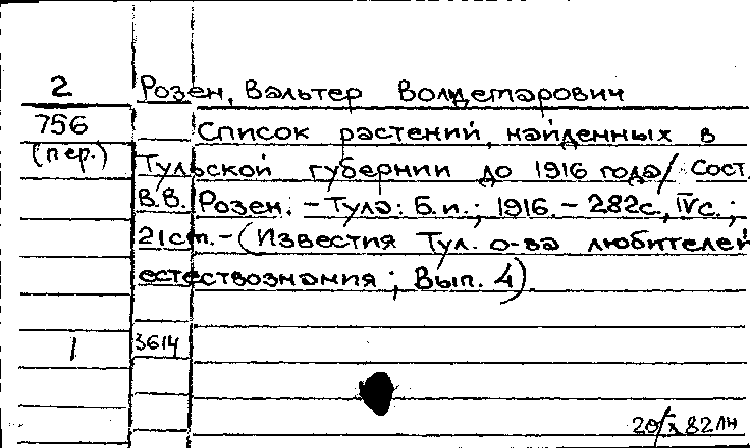 2 Розен, Вальтер Волдемарович
756 Список растений, найденных в
(пер.) Тульской губернии до 1916 года/ Сост.
В.В. Розен. - Тула: Б.и.; 1916. - 282с., IVс.;
21ст. - (Известия Тул. о-ва любителей
естествознания; Вып. 4)
1 3614
20/X 82 лн